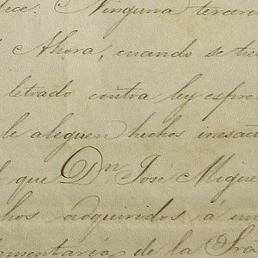 lice: Ninguna tercer
Ahora, cuando se tie
letrado contra ley espre
le aleguen hechos inesac
que Dn José Migue
hos adquiridos á un
amentaría de la Sra